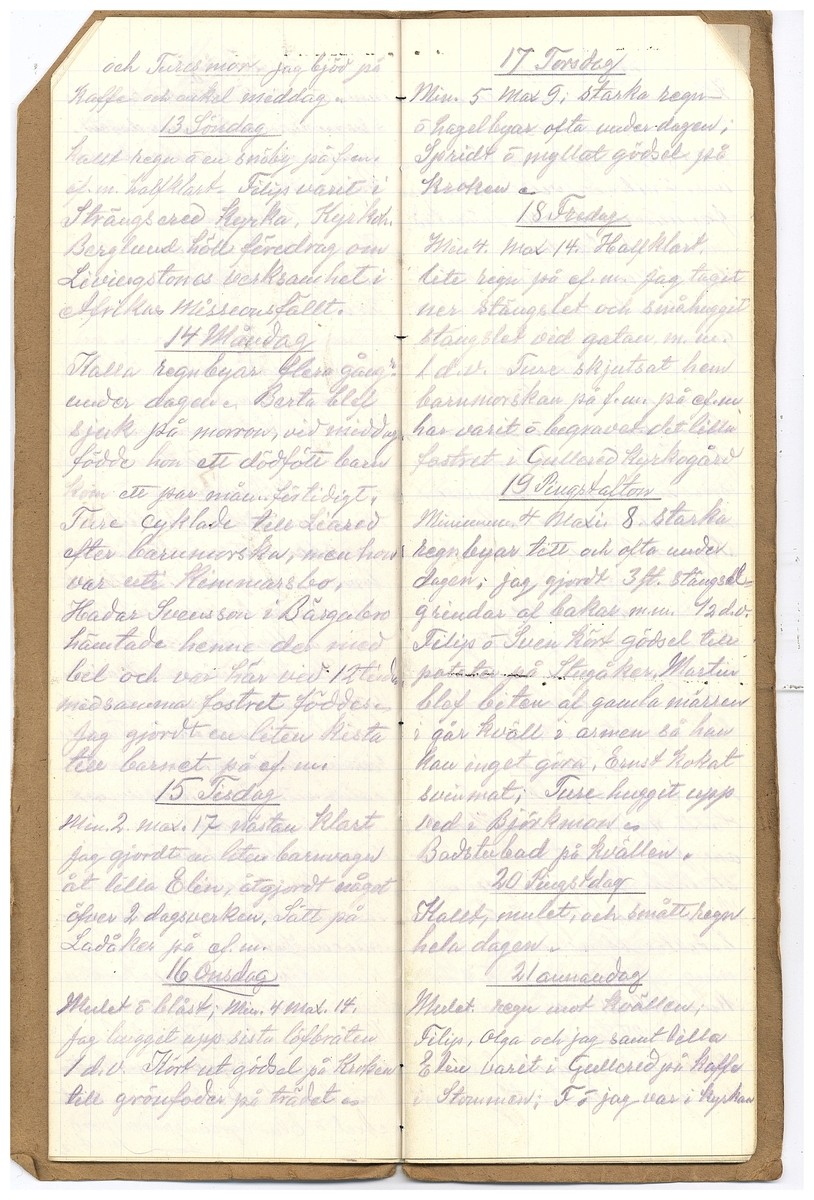 och Tures mor. jag bjöd på
Kaffe och enkel middag.
13 Söndag
Kallt regn ö en snöby på f.m.
ef.m. halfklart. Filip varit i
Strängsered Kyrka, Kyrkoh.
Berglund höll föredrag om
Livingstones verksamhet i
Afrikas Missionsfällt.
14 Måndag
Kalla regnbyar flera gång:r
under dagen. Berta blef
sjuk på morron, vid middag
födde hon ett dödfött barn
kom ett par mån. förtidigt.
Ture cyklade till Liared
efter barnmorska, men hon
var uti Kimmarsbo.
Hadar Svensson i Bärgabro
hämtade henne der med
bil och var här ved 12 tiden
medsamma fostret föddes.
Jag gjordt en liten kista
till barnet på ef.m.
15 Tisdag
Min. 2. max. 17 nästan klart
Jag gjordt en liten barnvagn
åt lilla Elin, åtgjordt något
öfver 2 dagsverken. Sått på
Ladåker på ef.m.
16 Onsdag
Mulet ö blåst; Min. 4 max. 14.
Jag hugget upp sista löfbråten
1 d.v. Kört ut gödsel på Kroken
till grönfoder på trädet
17 Torsdag
Min. 5 max 9; starka regn
ö hagelbyar ofta under dagen;
Spridt ö myllat gödsel på
Kroken
18 Fredag
Min 4. max 14. Halfklart
lite regn på ef.m. Jag taget
ner stängslet och småhuggit
stängslet ved gatan m.m.
1 d.v. Ture skjutsat hem
barnmorskan på f.m. på ef.m
har varit ö begravat det lilla
fostret i Gullered Kyrkogård
19 Pingstafton
Minimum. 4 Maxi. 8 starka
regnbyar titt och ofta under
dagen; jag gjordt 3 st. stängsel-
grindar af bakar m.m. 1/2 d.v.
Filip ö Sven kört gödsel till
potater på Stugåker, Martin
blef biten af gamla märren
i går kväll i armen så han
kan inget göra. Ernst kokat
svinmat; Ture hugget upp
ved i Björkmon
Badstubad på kvällen.
20 Pingstdag
Kallt, mulet, och smått regn
hela dagen.
21 annandag
Mulet. regn mot kvällen;
Filip, Olga och jag samt lilla
Elin varit i Gullered på kaffe
i Stommen; F ö jag var i kyrkan